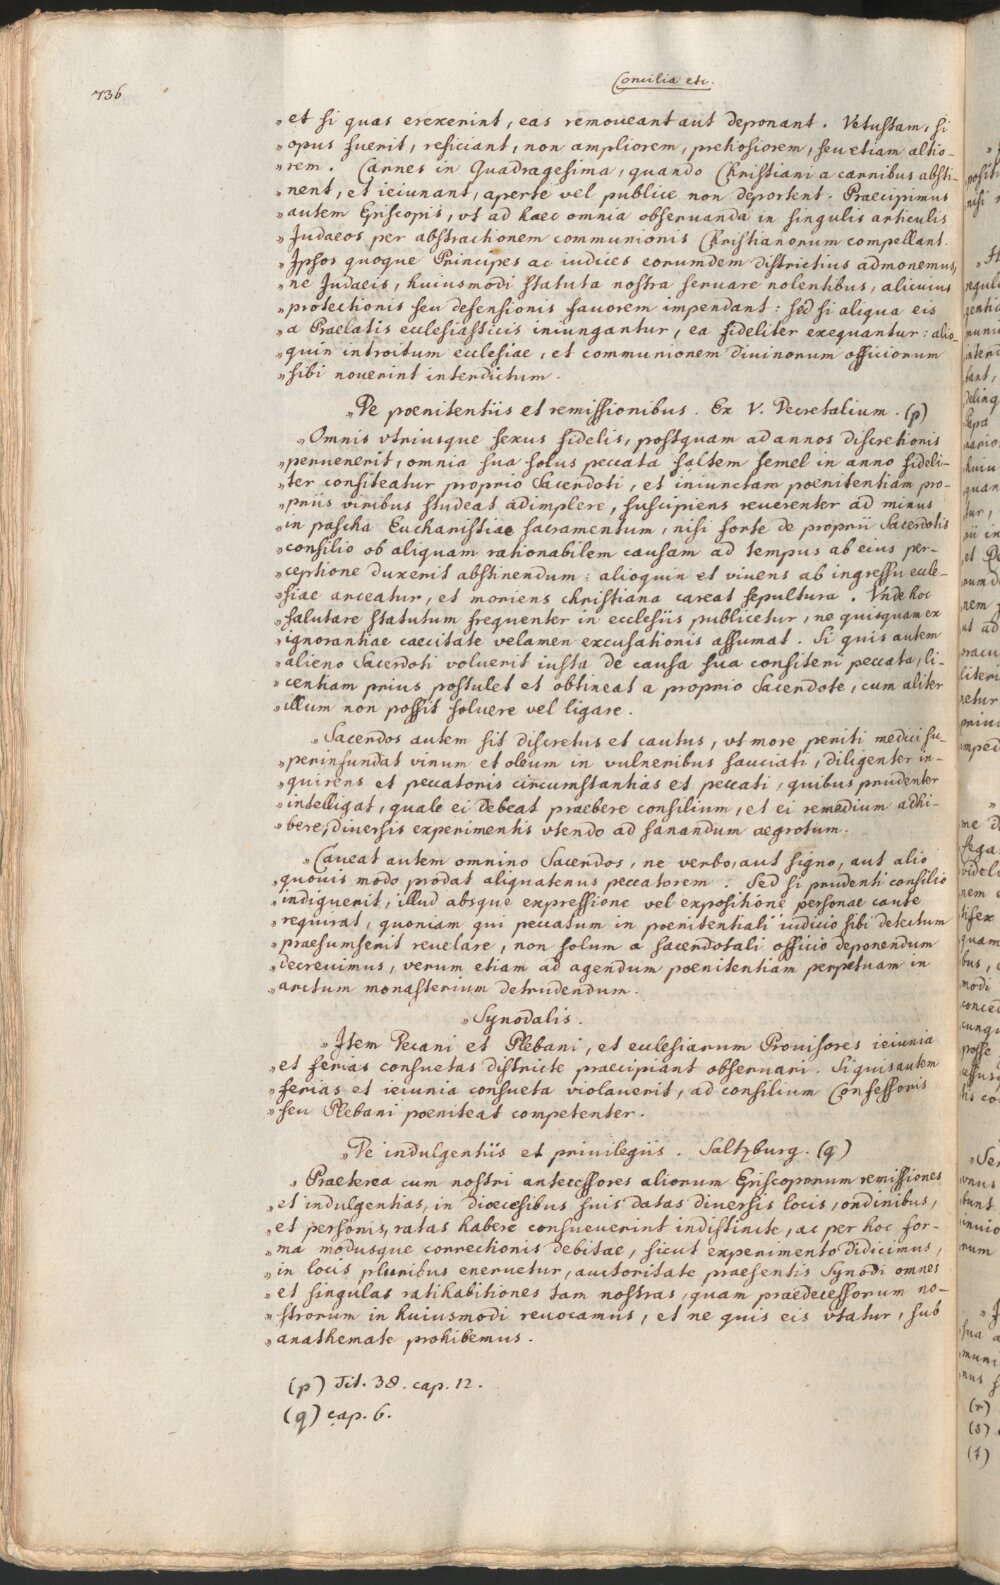 736
Concilia etc.
„et si quas erexerint, eas remoueant aut deponant. Vetustam, si
„opus fuerit, reficiant, non ampliorem, pretiosiorem, seu etiam altio-
„rem. Carnes in Quadragesima, quando Christiani a carnibus absti-
„nent, et ieiunant, aperte vel publice non deportent. Praecipimus
„autem Episcopis, vt ad haec omnia obseruanda in singulis articulis
„Judaeos per abstractionem communionis Christianorum compellant.
„Ipsos quoque Principes ac iudices eorumdem districtius admonemus,
„ne Judaeis, huiusmodi statuta nostra seruare nolentibus, alicuius
„protectionis seu defensionis fauorem impendant: sed si aliqua eis
„a Praelatis ecclesiasticis iniungantur, ea fideliter exequantur: alio-
„quin introitum ecclesiae, et communionem diuinorum officiorum
„sibi nouerint interdictum.
„De poenitentiis et remissionibus. Ex V. Decretalium. (p)
„Omnis vtriusque sexus fidelis, postquam ad annos discretionis
„peruenerit, omnia sua solus peccata saltem semel in anno fideli-
„ter confiteatur proprio Sacerdoti, et iniunctam poenitentiam pro-
„priis viribus studeat adimplere, suscipiens reuerenter ad minus
„in pascha Eucharistiae sacramentum, nisi forte de proprii Sacerdotis
„consilio ob aliquam rationabilem causam ad tempus ab eius per-
„ceptione duxerit abstinendum: alioquin et viuens ab ingressu eccle-
„siae arceatur, et moriens christiana careat sepultura. Vnde hoc
„salutare statutum frequenter in ecclesiis publicetur, ne quisquam ex
„ignorantiae caecitate velamen excusationis assumat. Si quis autem
„alieno Sacerdoti voluerit iusta de causa sua confiteri peccata, li-
„centiam prius postulet et obtineat a proprio Sacerdote, cum aliter
„illum non possit soluere vel ligare.
„Sacerdos autem sit discretus et cautus, vt more periti medici su-
„perinfundat vinum et oleum in vulneribus sauciati, diligenter in-
„quirens et peccatoris circumstantias et peccati, quibus prudenter
„intelligat, quale ei debeat praebere consilium, et ei remedium adhi-
„bere, diuersis experimentis vtendo ad sanandum aegrotum.
„Caueat autem omnino Sacerdos, ne verbo, aut signo, aut alio
„quouis modo prodat aliquatenus peccatorem. Sed si prudenti consilio
„indiguerit, illud absque expressione vel expositione personae caute
„requirat, quoniam qui peccatum in poenitentiali iudicio sibi detectum
„praesumserit reuelare, non solum a sacerdotali officio deponendum
„decreuimus, verum etiam ad agendum poenitentiam perpetuam in
„arctum monasterium detrudendum.
„Synodalis.
„Item Decani et Plebani, et ecclesiarum Prouisores ieiunia
„et ferias consuetas districte praecipiant obseruari. Si quis autem
„ferias et ieiunia consueta violauerit, ad consilium Confessoris
„seu Plebani poeniteat competenter.
„De indulgentiis et priuilegiis. Saltzburg. (q)
„Praeterea cum nostri antecessores aliorum Episcoporum remissiones
„et indulgentias, in dioecesibus suis datas diuersis locis, ordinibus,
„et personis, ratas habere consueuerint indistincte, ac per hoc for-
„ma modusque correctionis debitae, sicut experimento didicimus,
„in locis pluribus eneruetur, auctoritate praesentis Synodi omnes
„et singulas ratihabitiones tam nostras, quam praedecessorum no-
„strorum in huiusmodi reuocamus, et ne quis eis vtatur, sub
„anathemate prohibemus.
(p) Tit. 38. cap. 12.
(q) cap. 6.